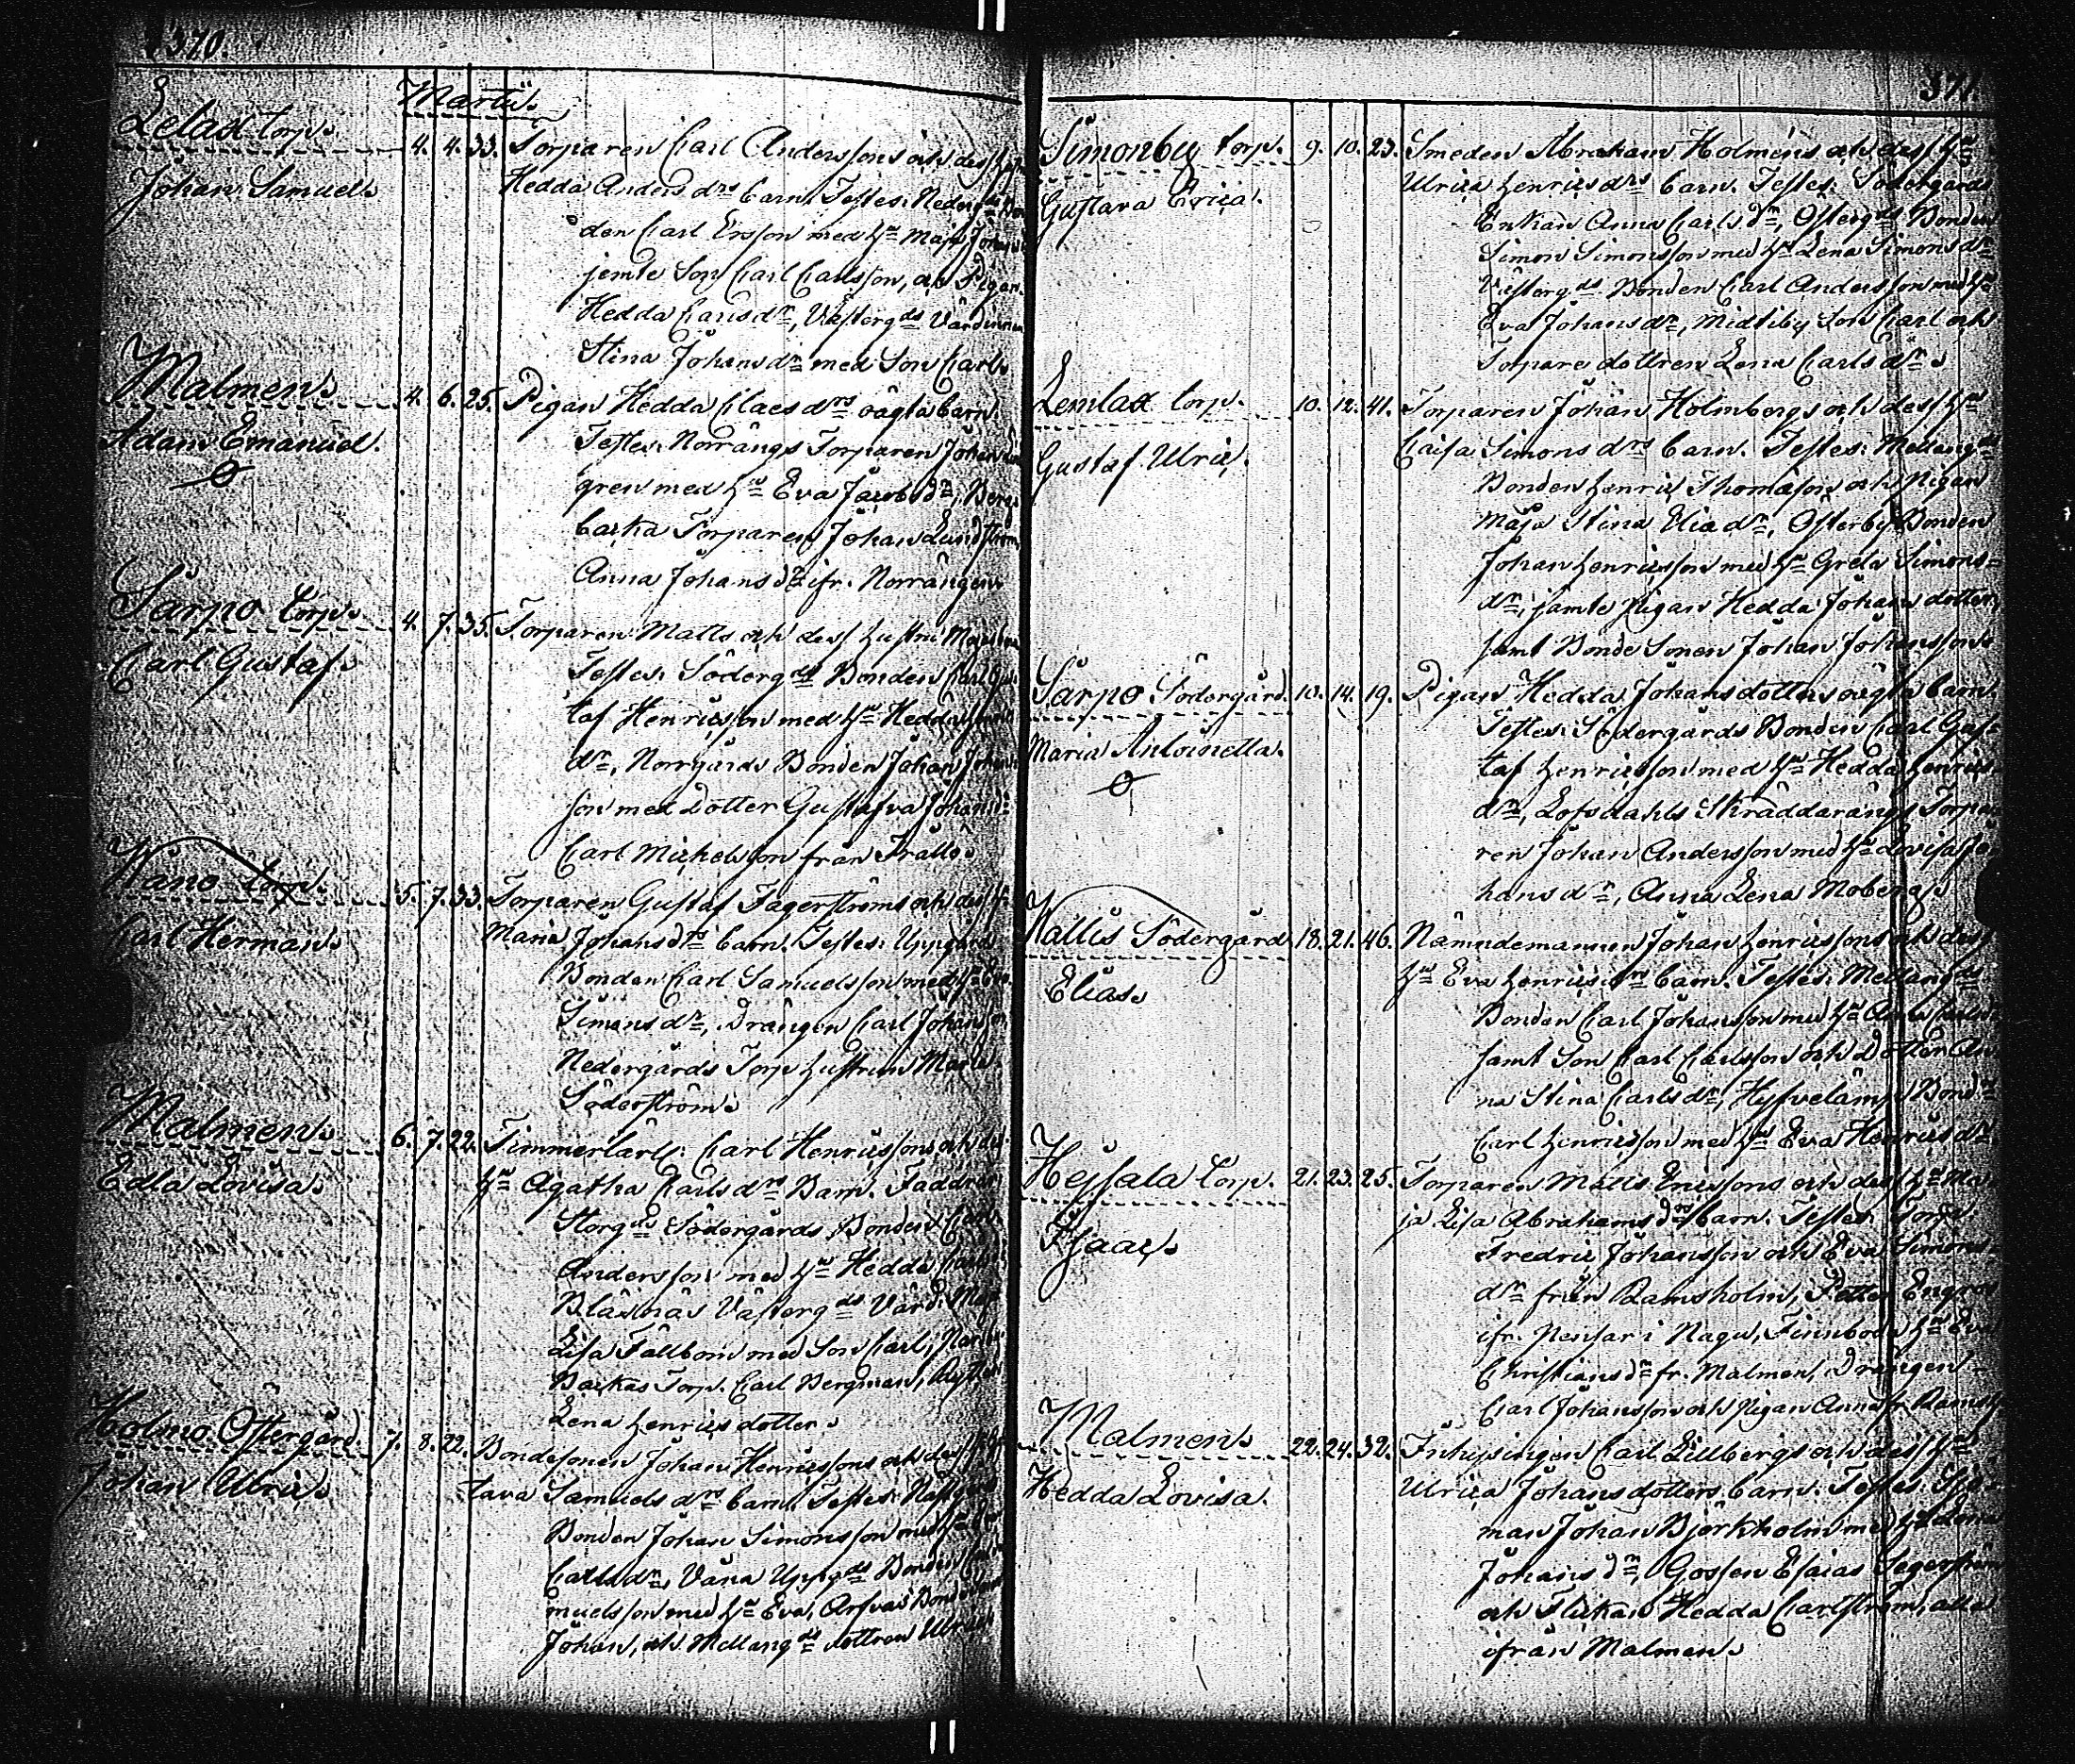 370.
Martii.
Lelax torp.
4. 4. 33. Torparen Carl Anderssons och dess
Johan Samuel.
Hedda Anders drs barn. Testes: Nederg ds Bon
den Carl Ersson med Hu Maja Johans
jemte Son Carl Carlsson, och Pigan
Hedda Carls dr, Västerg ds Värdinnan
Stina Johans dr med Son Carl.
Malmen.
4. 6. 25. Pigan Hedda Claes drs oägta barn.
Adam Emanuel.
Testes: Norrängs Torparen Johan
gren med Hu Eva Jacobs dr, Berg
backa Torparen Johan Lundström,
Anna Johans dr ifr. Norrängen
Särpo torp.
4. 7. 35. Torparen Matts och dess hustru
Carl Gustaf.
Testes: Söderg ds Bonden Carl Gus
taf Henricsson med Hu Hedda Henrics
dr, Norrgårds Bonden Johan Johans
son med Dotter Gustafva Johans dr
Carl Mickelsson från Trällö.
Wäno torp.
5. 7. 33. Torparen Gustaf Fagerströms och dess
Carl Herman.
Maria Johans drs barn. Testes: Uppgårds
Bonden Carl Samuelsson med Hu Eva
Simons dr, Drängen Carl Johansson
Nedergårds Torp hustrun Maria
Söderström.
Malmen.
6. 7. 22. Timmerkarls: Carl Henricssons och dess
Edla Lovisa.
Hu Agatha Carls drs Barn. Faddrar
Storg ds Södergårds Bonden Carl
Andersson med Hu Hedda Carls
Bläsnäs Västerg ds Värd: Maja
Lisa Fällbom med Son Carl,
Backas Torp. Carl Bergman,
Lena Henrics dotter.
Holmo Östergård
7. 8. 22. Bondesonen Johan Henricssons och dess
Johan Ulric.
tava Samuels drs barn. Testes:
Bonden Johan Simonsson med Hu
Carls dr, Väna Uppg ds Bonden
muelsson med Hu Eva, Arfvas Bonde
Johan, och Mellang ds dottren Ulrica
371.
Simonby torp.
9. 10. 23. Smeden Abraham Holméns och dess Hu
Gustava Erica.
Ulrica Henrics drs barn. Testes: Södergårds
Enkan Anna Carls dr, Österg ds Bonden
Simon Simonsson med Hu Lena Simons dr
Västerg ds Bonden Carl Andersson med Hu
Eva Johans dr, Midtiby Son Carl och
Torpare dottren Lena Carls dr.
Lemlax torp.
10. 12. 41. Torparen Johan Holmbergs och dess Hu
Gustaf Ulric.
Caisa Simons drs barn. Testes: Mellang ds
Bonden Henric Thomasson och Pigan
Maja Stina Elia dr, Österby Bonden
Johan Henricsson med Hu Greta Simons=
dr, jämte Pigan Hedda Johans dotter,
samt Bonde Sonen Johan Johansson.
Särpo Södergård
10. 14. 19. Pigan Hedda Johans dotters oägta barn.
Maria Antoinetta.
Testes: Södergårds Bonden Carl Gus=
taf Henricsson med Hu Hedda Henrics
dr, Lofsdahls Skräddarängs Torpa
ren Johan Andersson med Hu Lovisa Jo
hans dr, Anna Lena Moberg.
Wallis Södergård
18. 21. 46. Nämndemannen Johan Henricssons och dess
Elias.
Hu Eva Henrics drs barn. Testes: Mellang ds
Bonden Carl Johansson med Hu Anna Carls
samt Son Carl Carlsson och dotter An
na Stina Carls dr, Hyfvelämpi Bond
Carl Henricsson med Hu Eva Henrics dr.
Hessala torp.
21. 23. 25. Torparen Matts Ericssons och dess Hu Ma
Isaac.
ja Lisa Abrahams drs barn. Testes: Torp.
Fredric Johansson och Eva Simons
dr från Ramsholm, Petter Engros
ifr. Pensar i Nagu, Finnbodu Hu Eva
Christians dr fr. Malmen, Drängen
Carl Johansson och Pigan Anna fr. Ramsh.
Malmen.
22. 24. 32. Inhysingen Carl Lillbergs och dess Hu
Hedda Lovisa.
Ulrica Johans dotters barn. Testes: Sjö=
man Johan Björkholm med Hu Lena
Johans dr, Gossen Esaias Segerström
och Flickan Hedda Carlström, alla
ifrån Malmen.